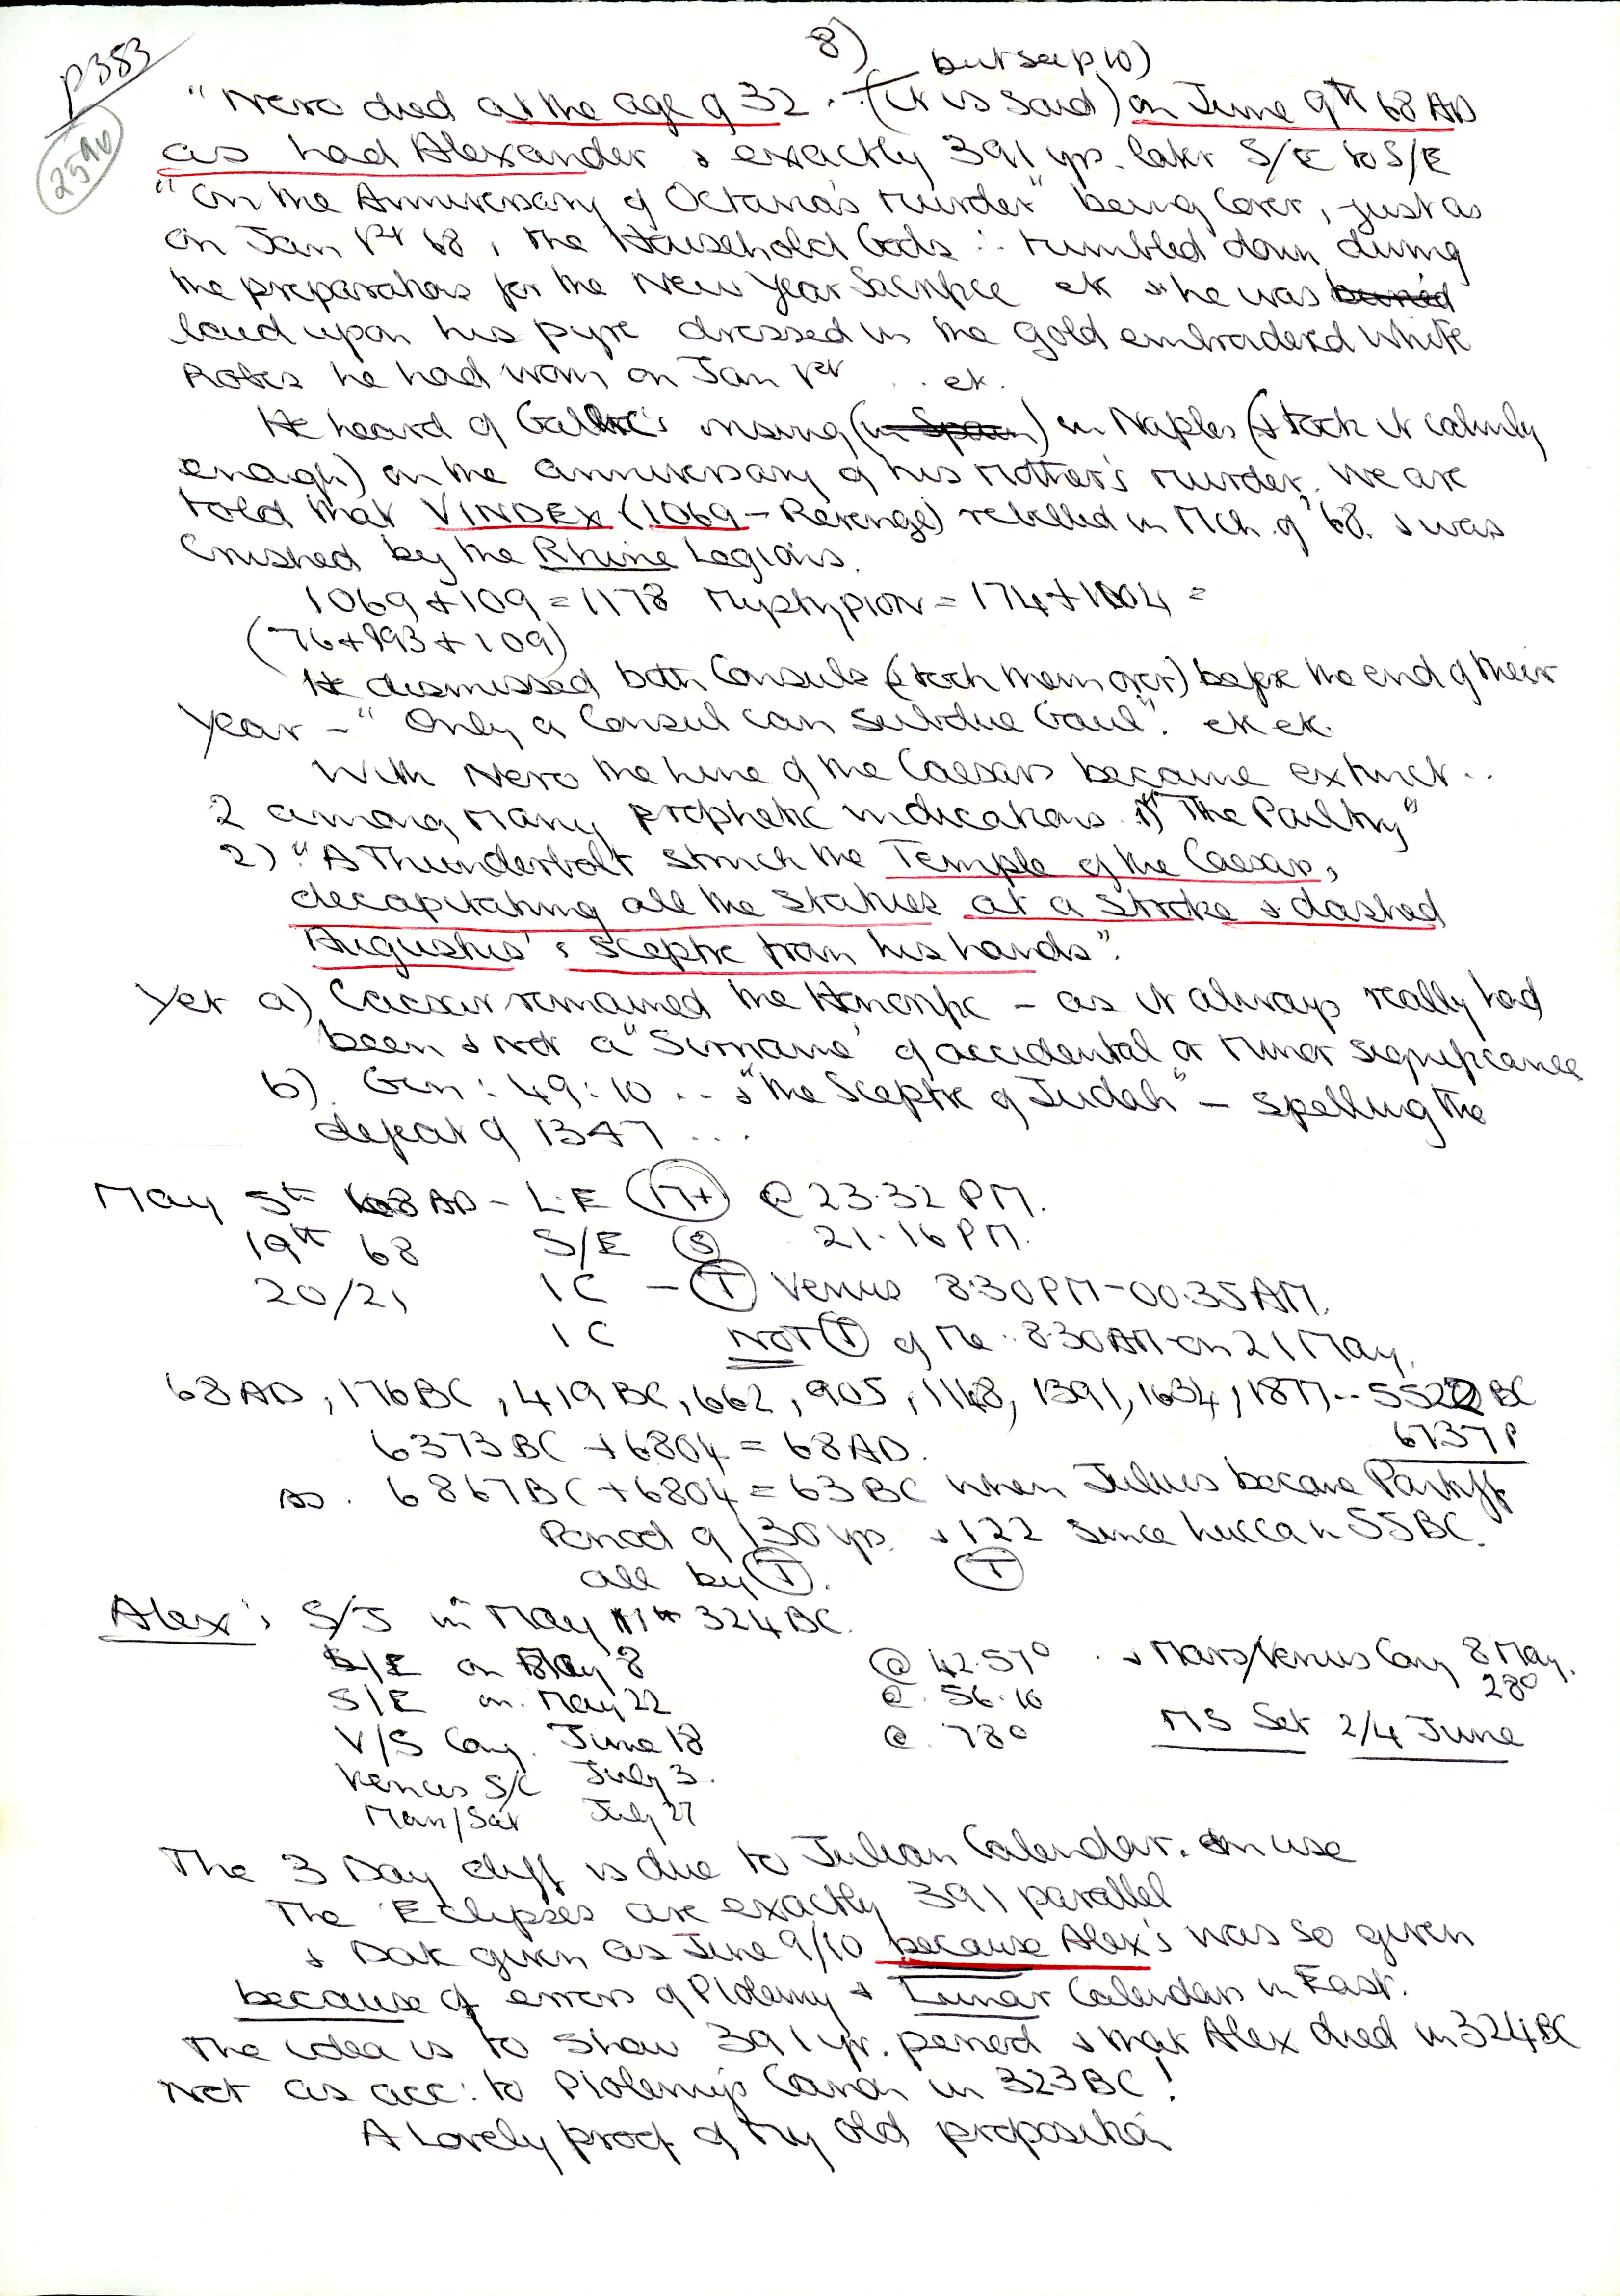 8)
P383
but see p 10)
259
"Nero died at the age of 32. (it is said) on June 9th 68 AD
as had Alexander & exactly 391 yrs. later S/E to S/E
"on the Anniversary of Octavia's murder" being cover, just as
on Jan 1st 68, the Household Gods tumbled down during
the preparations for the New Year Sacrifice etc & he was buried
laid upon his pyre dressed in the gold embroidered white
Robes he had worn on Jan 1st . . etc.
He heard of rising (in Spain) in Naples (& took it calmly
enough) on the anniversary of his Mother's murder. We are
told that VINDEX (1069 - Revenge) rebelled in Mch. of '68. & was
crushed by the Rhine Legions.
1069 + 109 = 1178 = 174 + 1004 =
(76 + 993 + 109)
He dismissed both Consuls (& took them over) before the end of their
Year - "Only a Consul can subdue Gaul". etc etc.
With Nero the line of the Caesars became extinct ..
2 among many prophetic indications. 1) "The Poultry"
2) "A Thunderbolt struck the Temple of the Caesars,
decapitating all the statues at a stroke & dashed
Augustus's sceptre from his hands".
Yet a) Caesar remained the Honorific - as it always really had
been & not a "Surname" of accidental or minor significance
b) Gen: 49:10 ... & "the Sceptre of Judah" - spelling the
defeat of 1347 ...
May 5th 68 AD - L.E (M+) @ 23.32 PM.
19th 68 S/E (S) 21.16 PM.
20/21 IC - (T) Venus 8.30PM - 00.35AM.
IC NOT (T) of Me. 8.30AM on 21 May.
68 AD, 176 BC, 419 BC, 662, 905, 1148, 1391, 1634, 1877 .. 5522 BC
6373 BC + 6804 = 68 AD. 6737 P
as. 6867 BC + 6804 = 63 BC when Julius became Pontiff
Period of 130 yrs. & 122 since in 55 BC.
all by (T). (T)
Alex's S/J in May 11th 324 BC.
S/E on May 8 @ 42.57° . & Mars/Venus Conj 8 May.
S/E on. May 22 @. 56.16 28°
V/S Conj. June 18 @. 78° MS Set 2/4 June
Venus S/C July 3.
Mars/Sat July 27
The 3 Day diff is due to Julian Calendar. in use
The Eclipses are exactly 391 parallel
& Date given as June 9/10 because Alex's was so given
because of errors of Ptolemy & Lunar Calendars in East.
The idea is to show 391 yr. period & that Alex died in 324 BC
Not as acc: to Ptolemy's Canon in 323 BC!
A Lovely proof of my old proposition